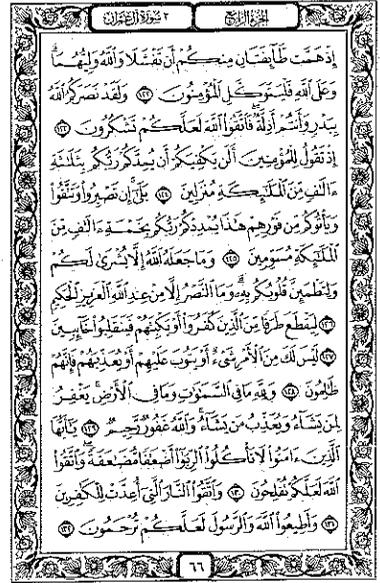 الجزء الرابع ٣ سورة آل عمران
إِذْ هَمَّت طَّآئِفَتَانِ مِنكُمْ أَن تَفْشَلَا وَٱللَّهُ وَلِيُّهُمَاۗ
وَعَلَى ٱللَّهِ فَلْيَتَوَكَّلِ ٱلْمُؤْمِنُونَ ١٢٢ وَلَقَدْ نَصَرَكُمُ ٱللَّهُ
بِبَدْرٍ وَأَنتُمْ أَذِلَّةٌۖ فَٱتَّقُوا۟ ٱللَّهَ لَعَلَّكُمْ تَشْكُرُونَ ١٢٣
إِذْ تَقُولُ لِلْمُؤْمِنِينَ أَلَن يَكْفِيَكُمْ أَن يُمِدَّكُمْ رَبُّكُم بِثَلَٰثَةِ
ءَالَٰفٍ مِّنَ ٱلْمَلَٰٓئِكَةِ مُنزَلِينَ ١٢٤ بَلَىٰٓۚ إِن تَصْبِرُوا۟ وَتَتَّقُوا۟
وَيَأْتُوكُم مِّن فَوْرِهِمْ هَٰذَا يُمْدِدْكُمْ رَبُّكُم بِخَمْسَةِ ءَالَٰفٍ مِّنَ
ٱلْمَلَٰٓئِكَةِ مُسَوِّمِينَ ١٢٥ وَمَا جَعَلَهُ ٱللَّهُ إِلَّا بُشْرَىٰ لَكُمْ
وَلِتَطْمَئِنَّ قُلُوبُكُم بِهِۦۗ وَمَا ٱلنَّصْرُ إِلَّا مِنْ عِندِ ٱللَّهِ ٱلْعَزِيزِ ٱلْحَكِيمِ
١٢٦ لِيَقْطَعَ طَرَفًا مِّنَ ٱلَّذِينَ كَفَرُوٓا۟ أَوْ يَكْبِتَهُمْ فَيَنقَلِبُوا۟ خَآئِبِينَ
١٢٧ لَيْسَ لَكَ مِنَ ٱلْأَمْرِ شَىْءٌ أَوْ يَتُوبَ عَلَيْهِمْ أَوْ يُعَذِّبَهُمْ فَإِنَّهُمْ
ظَٰلِمُونَ ١٢٨ وَلِلَّهِ مَا فِى ٱلسَّمَٰوَٰتِ وَمَا فِى ٱلْأَرْضِۚ يَغْفِرُ
لِمَن يَشَآءُ وَيُعَذِّبُ مَن يَشَآءُۚ وَٱللَّهُ غَفُورٌ رَّحِيمٌ ١٢٩ يَٰٓأَيُّهَا
ٱلَّذِينَ ءَامَنُوا۟ لَا تَأْكُلُوا۟ ٱلرِّبَوٰٓا۟ أَضْعَٰفًا مُّضَٰعَفَةًۖ وَٱتَّقُوا۟
ٱللَّهَ لَعَلَّكُمْ تُفْلِحُونَ ١٣٠ وَٱتَّقُوا۟ ٱلنَّارَ ٱلَّتِىٓ أُعِدَّتْ لِلْكَٰفِرِينَ
١٣١ وَأَطِيعُوا۟ ٱللَّهَ وَٱلرَّسُولَ لَعَلَّكُمْ تُرْحَمُونَ ١٣٢
٦٦